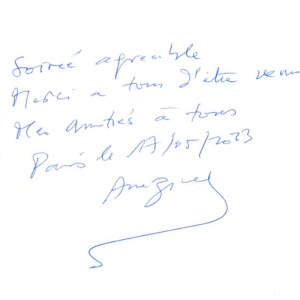 Soirée agréable
Merci a tous d'être venu
Mes amitiés à tous
Paris le 17/05/2023